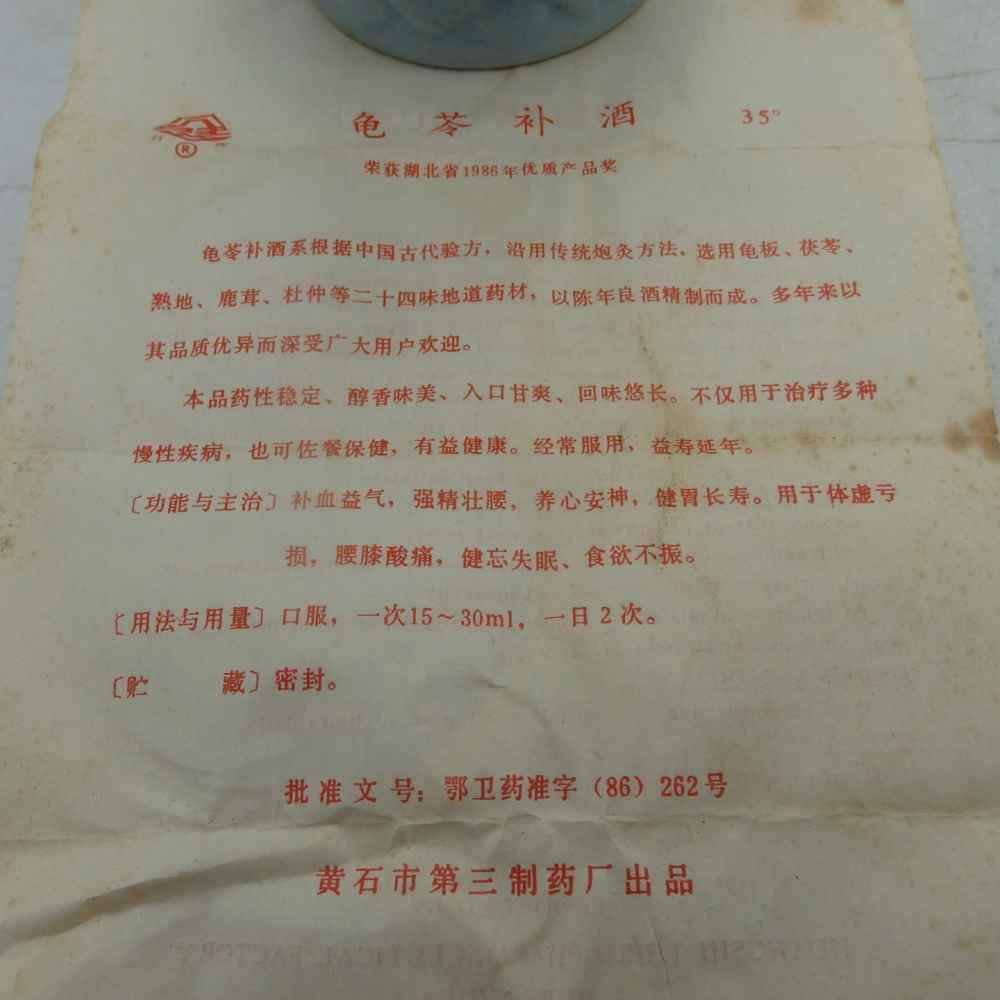 龟苓补酒 35°
®
荣获湖北省1986年优质产品奖
龟苓补酒系根据中国古代验方，沿用传统炮灸方法，选用龟板、茯苓、
熟地、鹿茸、杜仲等二十四味地道药材，以陈年良酒精制而成。多年来以
其品质优异而深受广大用户欢迎。
本品药性稳定、醇香味美、入口甘爽、回味悠长。不仅用于治疗多种
慢性疾病，也可佐餐保健，有益健康。经常服用，益寿延年。
〔功能与主治〕补血益气，强精壮腰，养心安神，健胃长寿。用于体虚亏
损，腰膝酸痛，健忘失眠、食欲不振。
〔用法与用量〕口服，一次15～30ml，一日2次。
〔贮 藏〕密封。
批准文号：鄂卫药准字（86）262号
黄石市第三制药厂出品